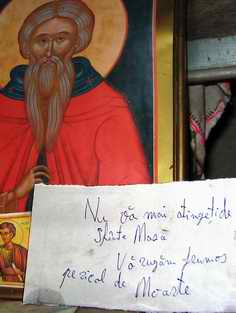 Nu vă mai atingeți de
Sfînta Masă
Vă rugăm frumos
pericol de Moarte